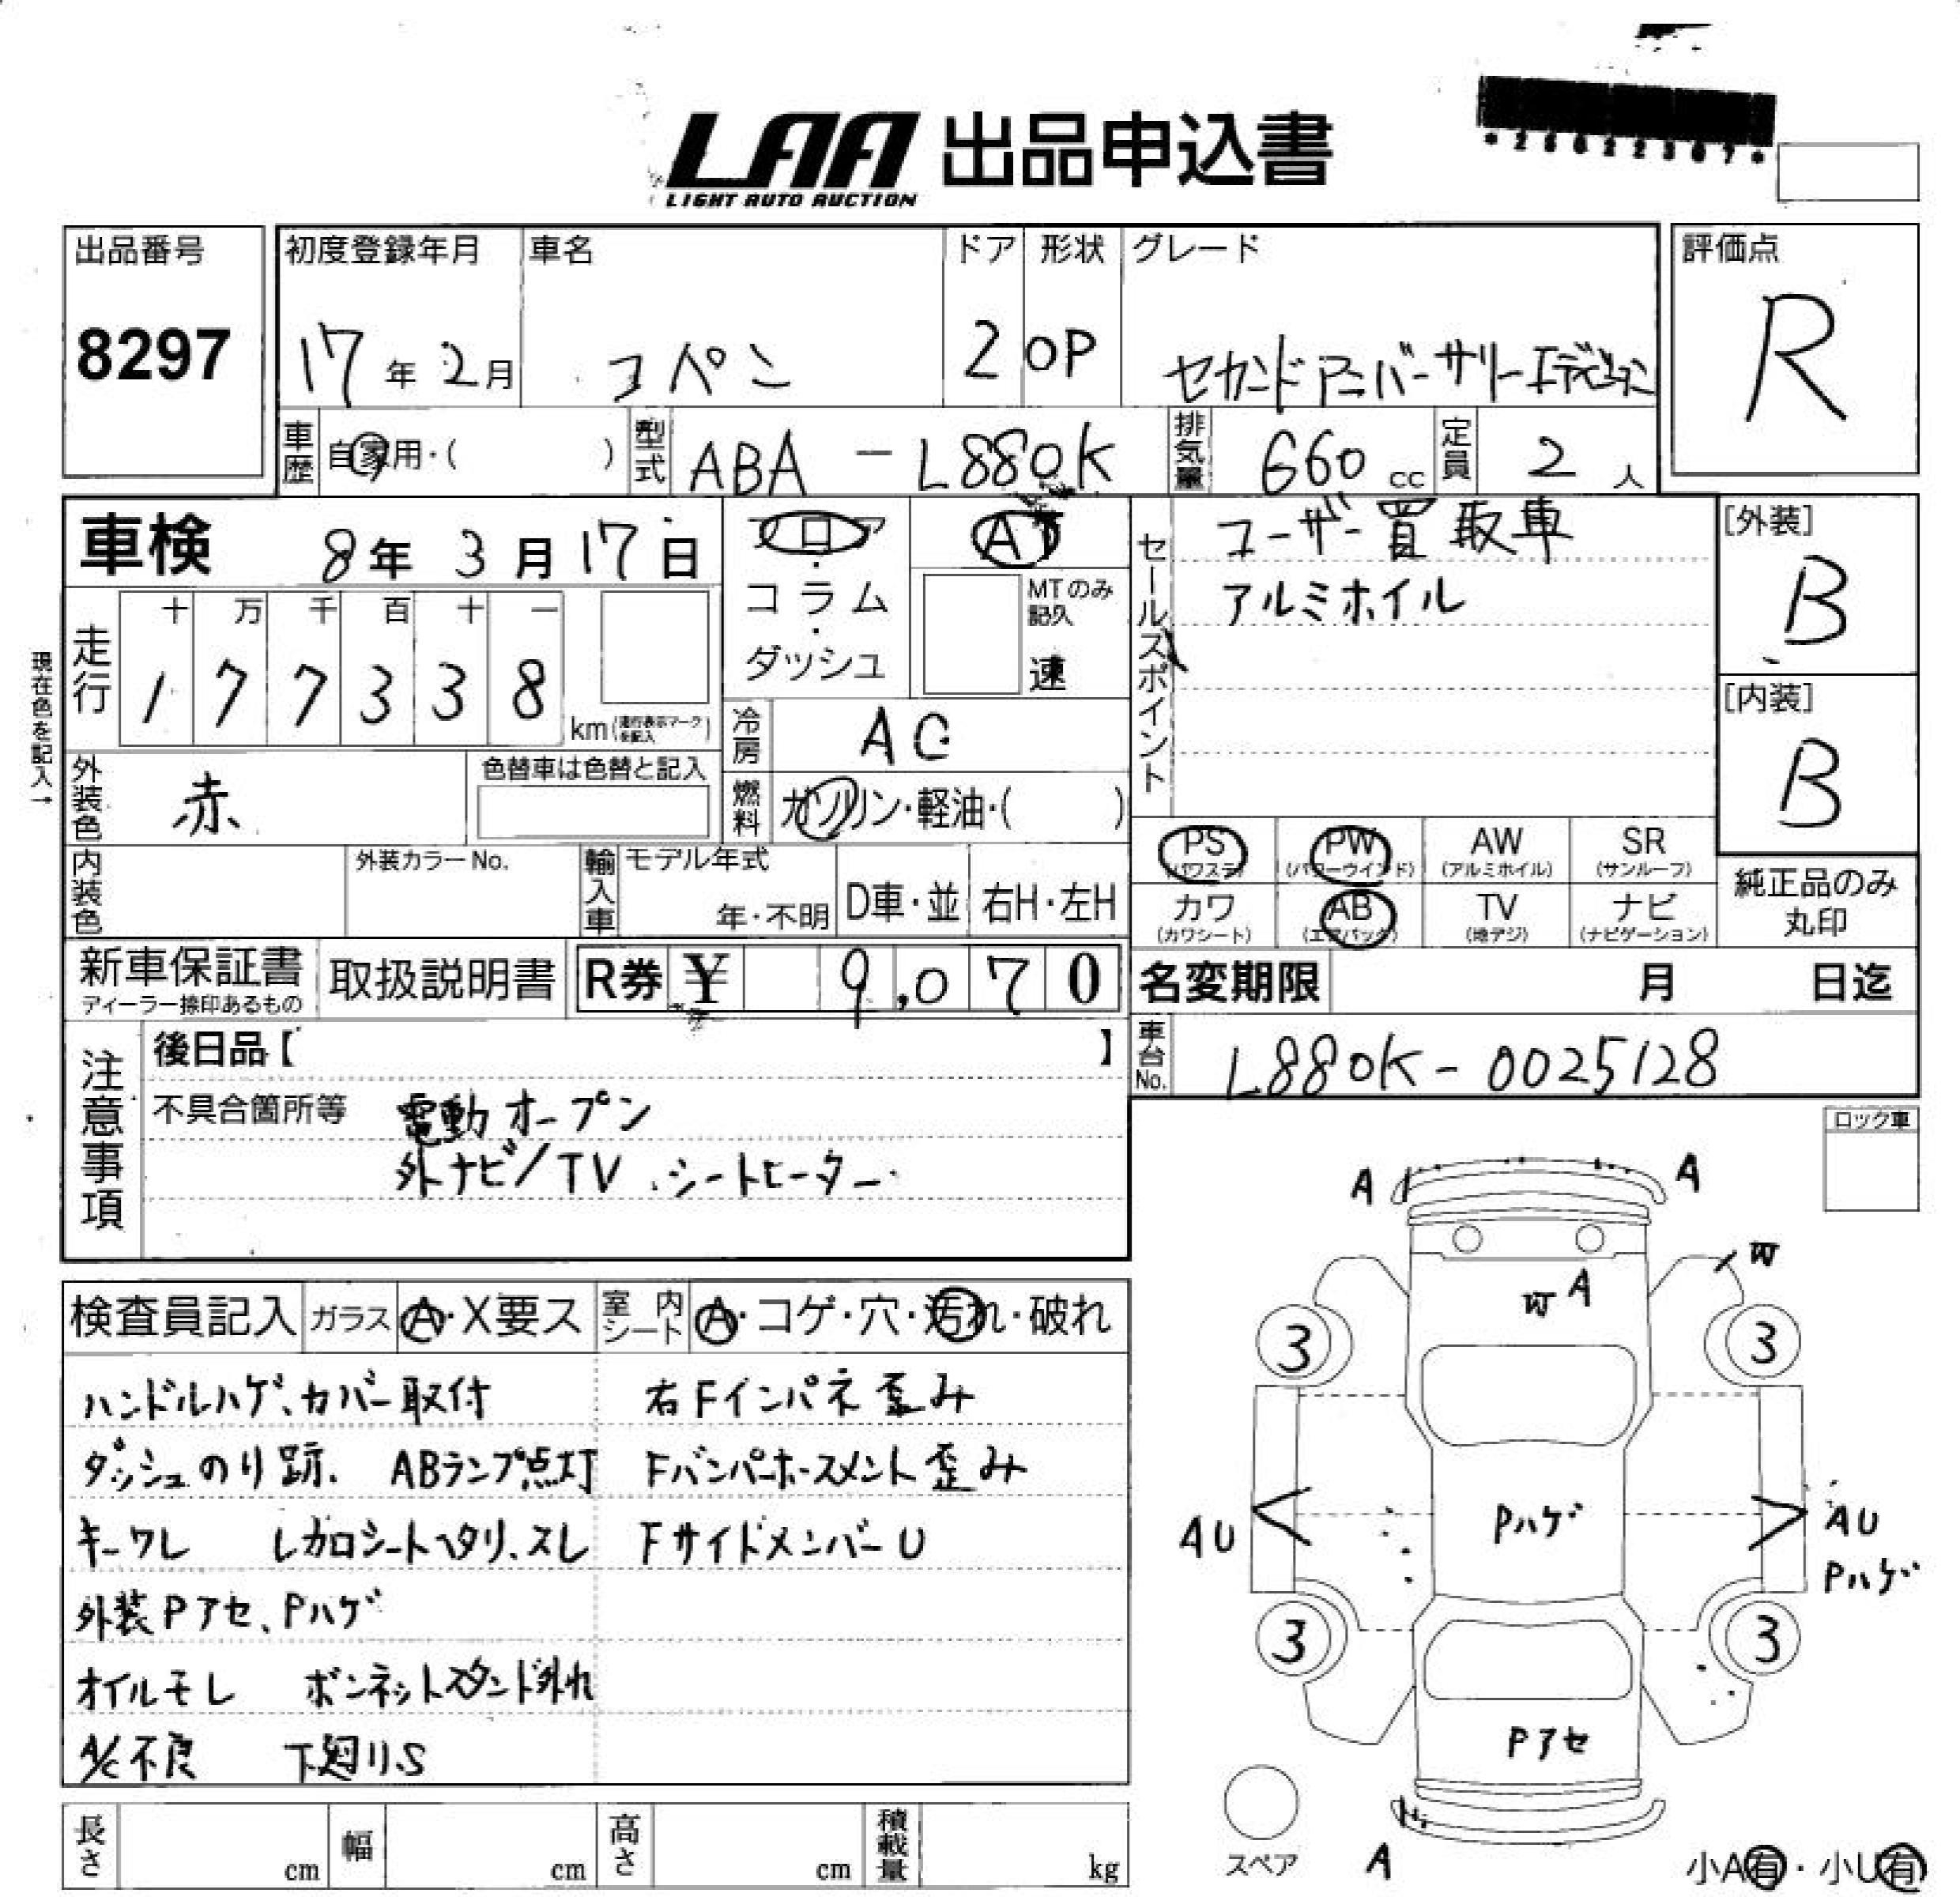 LAA 出品申込書
LIGHT AUTO AUCTION
*25022307*
出品番号
8297
初度登録年月
17年 2月
車名
コペン
ドア
2
形状
OP
グレード
セカンドアニバーサリーエディション
評価点
R
車歴
自家用・( )
型式
ABA - L880K
排気量
660 cc
定員
2 人
車検
8年 3月 17日
フロア・コラム・ダッシュ
AT
MTのみ記入
速
走行
十 万 千 百 十 一
1 7 7 3 3 8
km (走行表示マークを記入)
現在色を記入→
外装色
赤
色替車は色替と記入
冷房
AC
燃料
ガソリン・軽油・( )
内装色
外装カラーNo.
輸入車
モデル年式
年・不明
D車・並
右H・左H
セールスポイント
ユーザー買取車
アルミホイル
[外装]
B
[内装]
B
PS
(パワステ)
PW
(パワーウインド)
AW
(アルミホイル)
SR
(サンルーフ)
カワ
(カワシート)
AB
(エアバック)
TV
(地デジ)
ナビ
(ナビゲーション)
純正品のみ
丸印
新車保証書
ディーラー捺印あるもの
取扱説明書
R券 ¥ 9,070
名変期限
月 日迄
車台No.
L880K-0025128
注意事項
後日品【 】
不具合箇所等
電動オープン
外ナビ/TV、シートヒーター
ロック車
検査員記入
ガラス
A・X要ス
室内シート
A・コゲ・穴・汚れ・破れ
ハンドルハゲ、カバー取付
右Fインパネ歪み
ダッシュのり跡、 ABランプ点灯
Fバンパーホースメント歪み
キーワレ レカロシートヘタリ、スレ
FサイドメンバーU
外装Pアセ、Pハゲ
オイルモレ ボンネットスタンド外れ
A/C不良 下廻りS
A
A
W
W A
3
3
AU
Pハゲ
AU
Pハゲ
3
3
Pアセ
スペア
A
小A有・小U有
長さ
cm
幅
cm
高さ
cm
積載量
kg